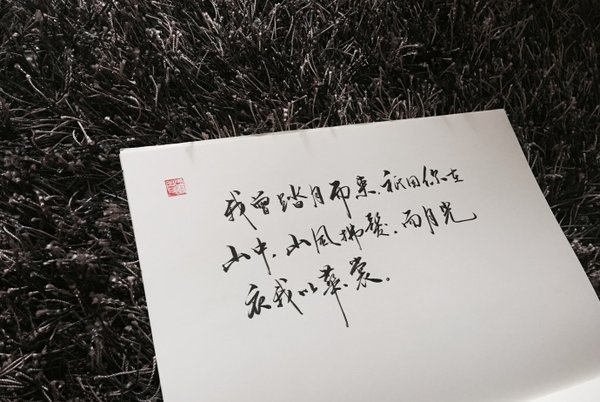 我曾踏月而來.祇因你在
山中.山风拂髮.而月光
衣我以華裳.